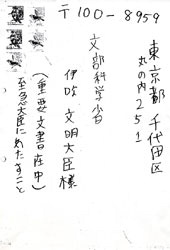 〒100-8959
東京都千代田区
丸の内251
文部科学省
伊吹文明大臣様
(重要文書在中)
至急大臣にわたすこと